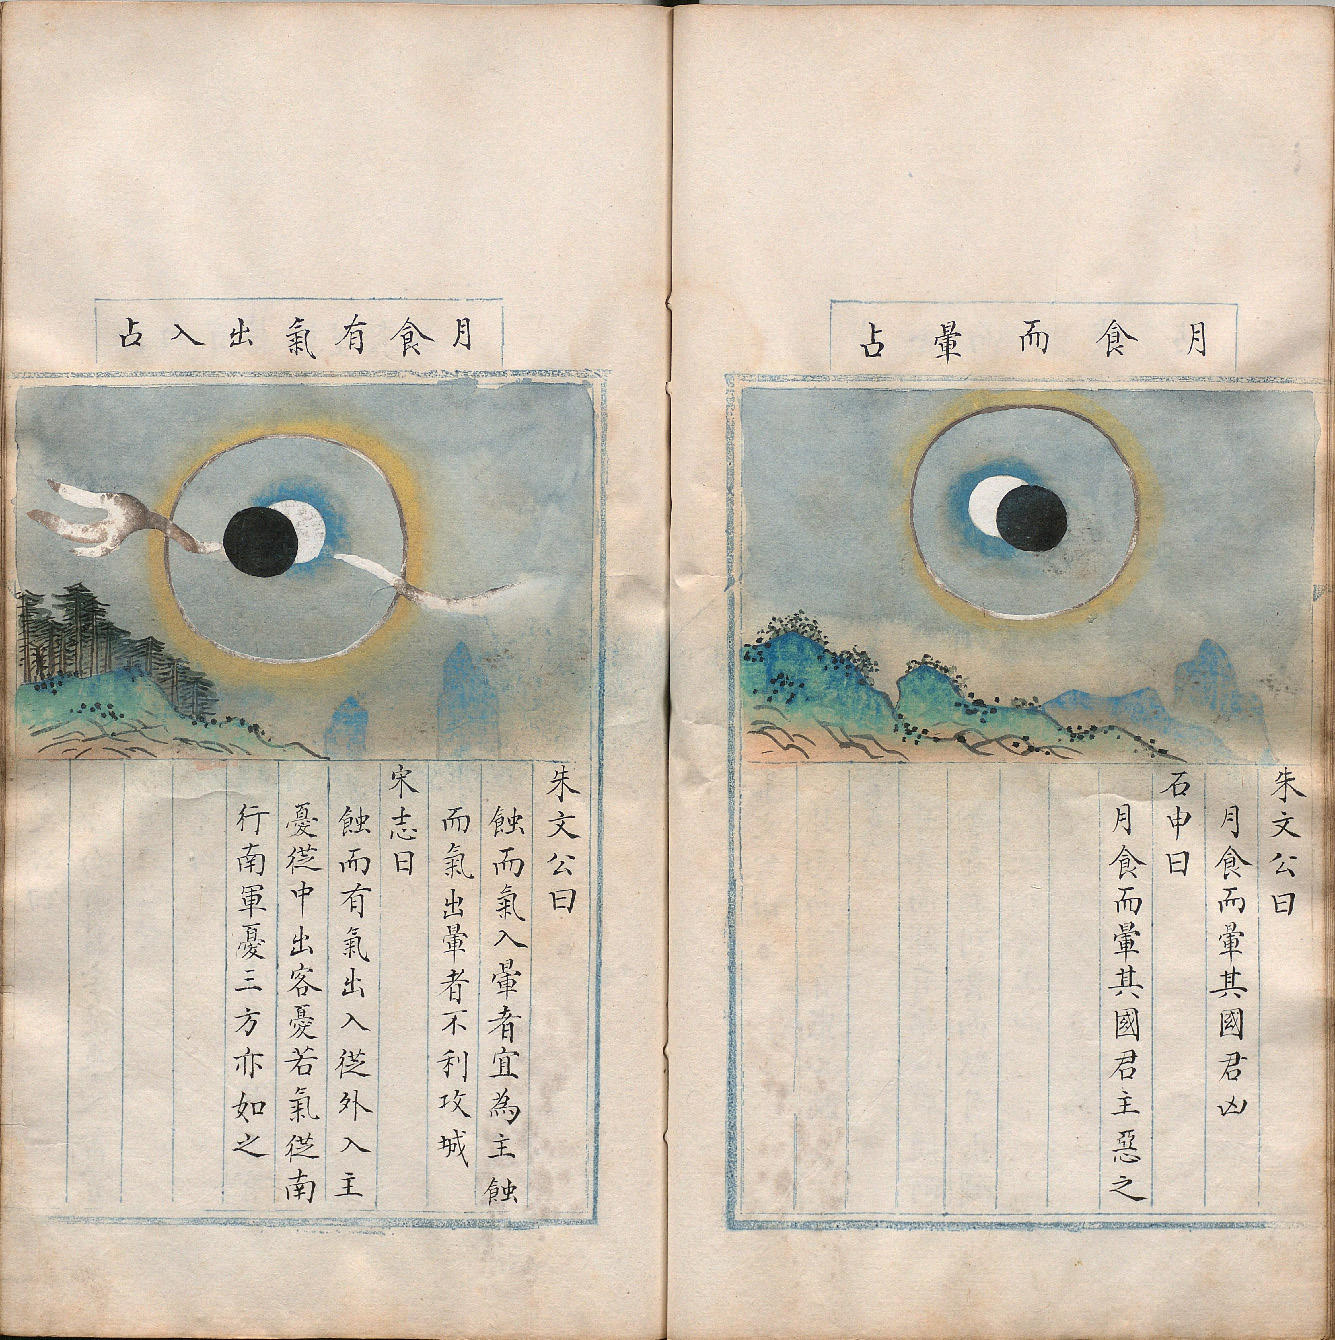 月食而暈占
朱文公曰
月食而暈其國君凶
石申曰
月食而暈其國君主惡之
月食有氣出入占
朱文公曰
蝕而氣入暈者宜為主蝕
而氣出暈者不利攻城
宋志曰
蝕而有氣出入從外入主
憂從中出客憂若氣從南
行南軍憂三方亦如之